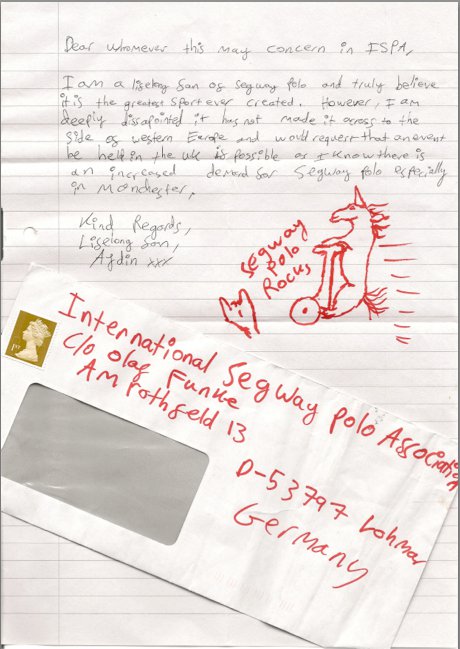 Dear whomever this may concern in ISPA,
I am a lifelong fan of segway polo and truly believe
it is the greatest sport ever created. However, I am
deeply dissapointed it has not made it across to the
side of western Europe and would request that an event
be held in the UK if possible as I know there is
an increased demand for segway polo especially
in Manchester,
Kind Regards,
Lifelong fan,
Aydin xxx
Segway
Polo
Rocks
1st
International Segway Polo Association
C/o Olaf Funke
Am rothfeld 13
D-53797 Lohmar
Germany